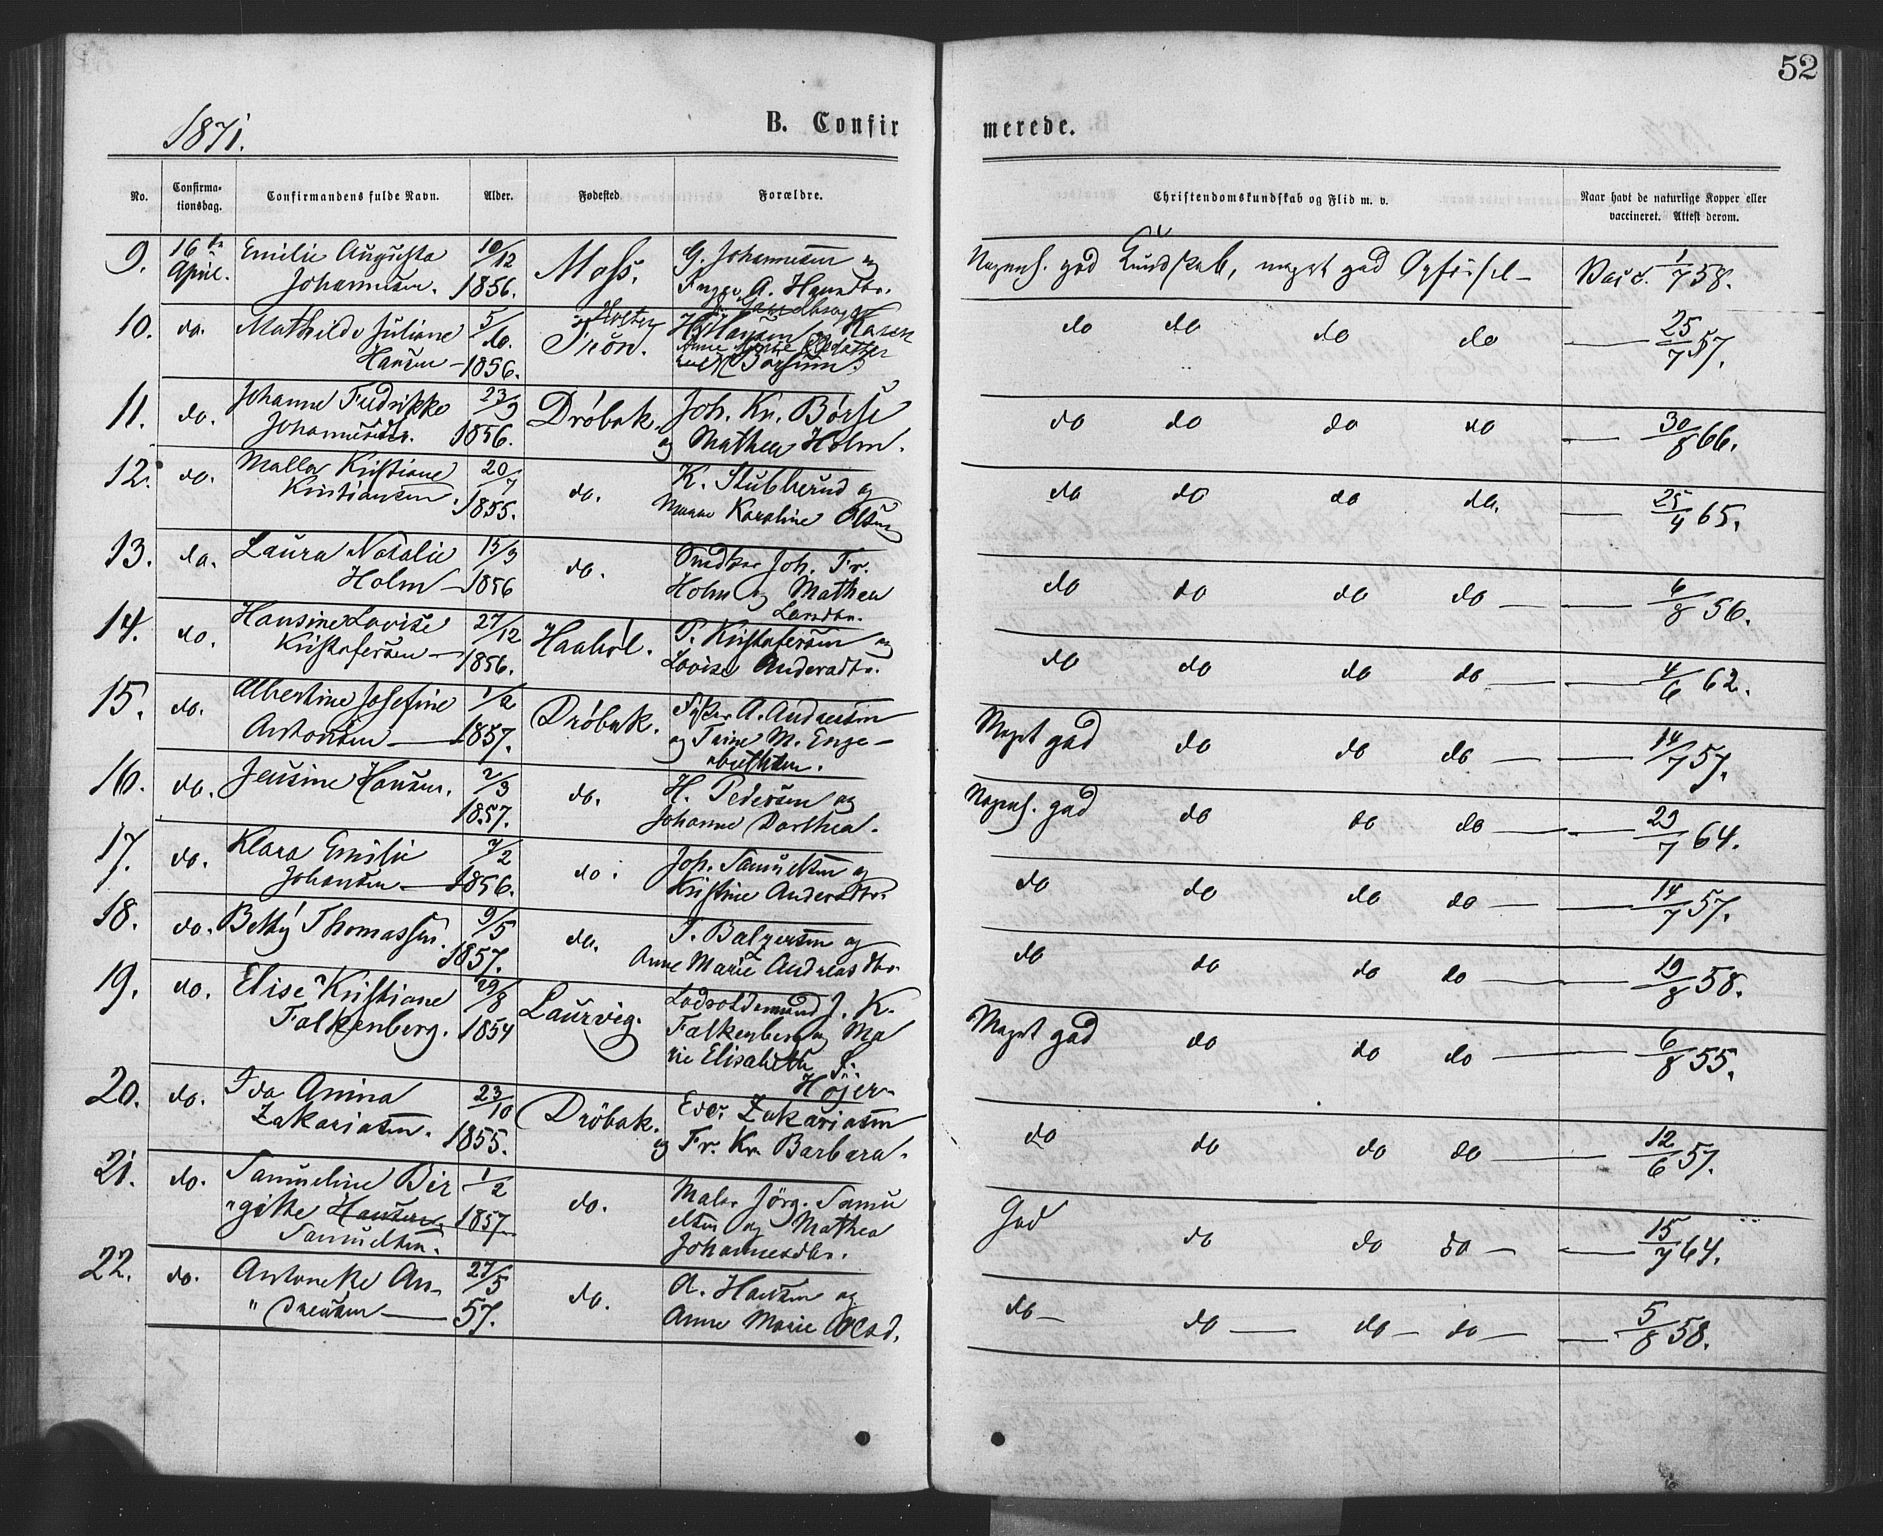 52
1871.
B. Confirmerede.
No. Confirmationsdag. Confirmandens fulde Navn. Alder. Fødested. Forældre. Christendomskundskab og Flid m. v. Naar havt de naturlige Kopper eller vaccineret. Attest derom.
9. 16de Emilie Augusta 10/12 Moss. G. Johannesen og
April. Johannesen. 1856. Inger A. Hansdtr.
god Kundskab, meget god Opførsel - Vacc. 1/7 58.
10. do. Mathilde Juliane 5/6 Trön. H. Hansen Karen
Hansen - 1856.
do do do do — 25/7 57.
11. do. Johanne Fredrikke 23/9 Dröbak. Joh. Kr. Börse
Johannesdtr. 1856. og Mathea Holm.
do do do do — 30/8 66.
12. do. Malla Kristiane 20/7 do. K. Stubberud og
Kristiansen. 1855. Karoline Olsen
do do do do. — 25/4 65.
13. do. Laura Natalie 15/9 do. Snedker Joh. Fr.
Holm - 1856 Holm og Mathea
Larsdtr.
do do do do — 6/8 56.
14. do. Hansine Lovise 27/12 Haaböl. P. Kristofersen og
Kristofersen - 1856. Lovise Andersdtr.
do do do do — 4/6 62.
15. do. Albertine Josefine 1/2 Dröbak. A. Andersen
Antonsen — 1857. og Trine M. Enge-
brethsen.
Meget god do do do — 14/7 57.
16. do. Jensine Hansen. 2/3 do. H. Pedersen og
1857. Johanne Dorthea.
god do do do — 29/7 64.
17. do. Klara Emilie 7/2 do. Joh. Samuelsen og
Johansen — 1856. Kristine Andersdtr.
do do do do — 14/7 57.
18. do. Betty Thomassen. 9/5 do. T. Balzersen og
1857. Anne Marie Andreasdtr.
do do do do — 19/8 58.
19. do. Elise Kristiane 29/8 Laurvig. Lodsoldermand J. K.
Falkenberg. 1854 Falkenberg og Ma
rie Elisabeth F.
Höjer.
Meget god do do do — 6/8 55.
20. do. Ida Amina 23/10 Dröbak. Edv. Zakariasen
Zakariasen. 1855. og Fr. Kr. Barbara.
do do do do — 12/6 57.
21. do. Samueline Bir 1/2 do. Maler Jörg. Samu
"gitte Hansen 1857. elsen og Mathea
Samuelsen. Johannesdtr.
God do do do — 15/7 64.
22. do. Antonette An- 27/5 do. A. Hansen og
" dreasen — 57. Anne Marie Olsd.
do — do — do — do — 5/8 58.